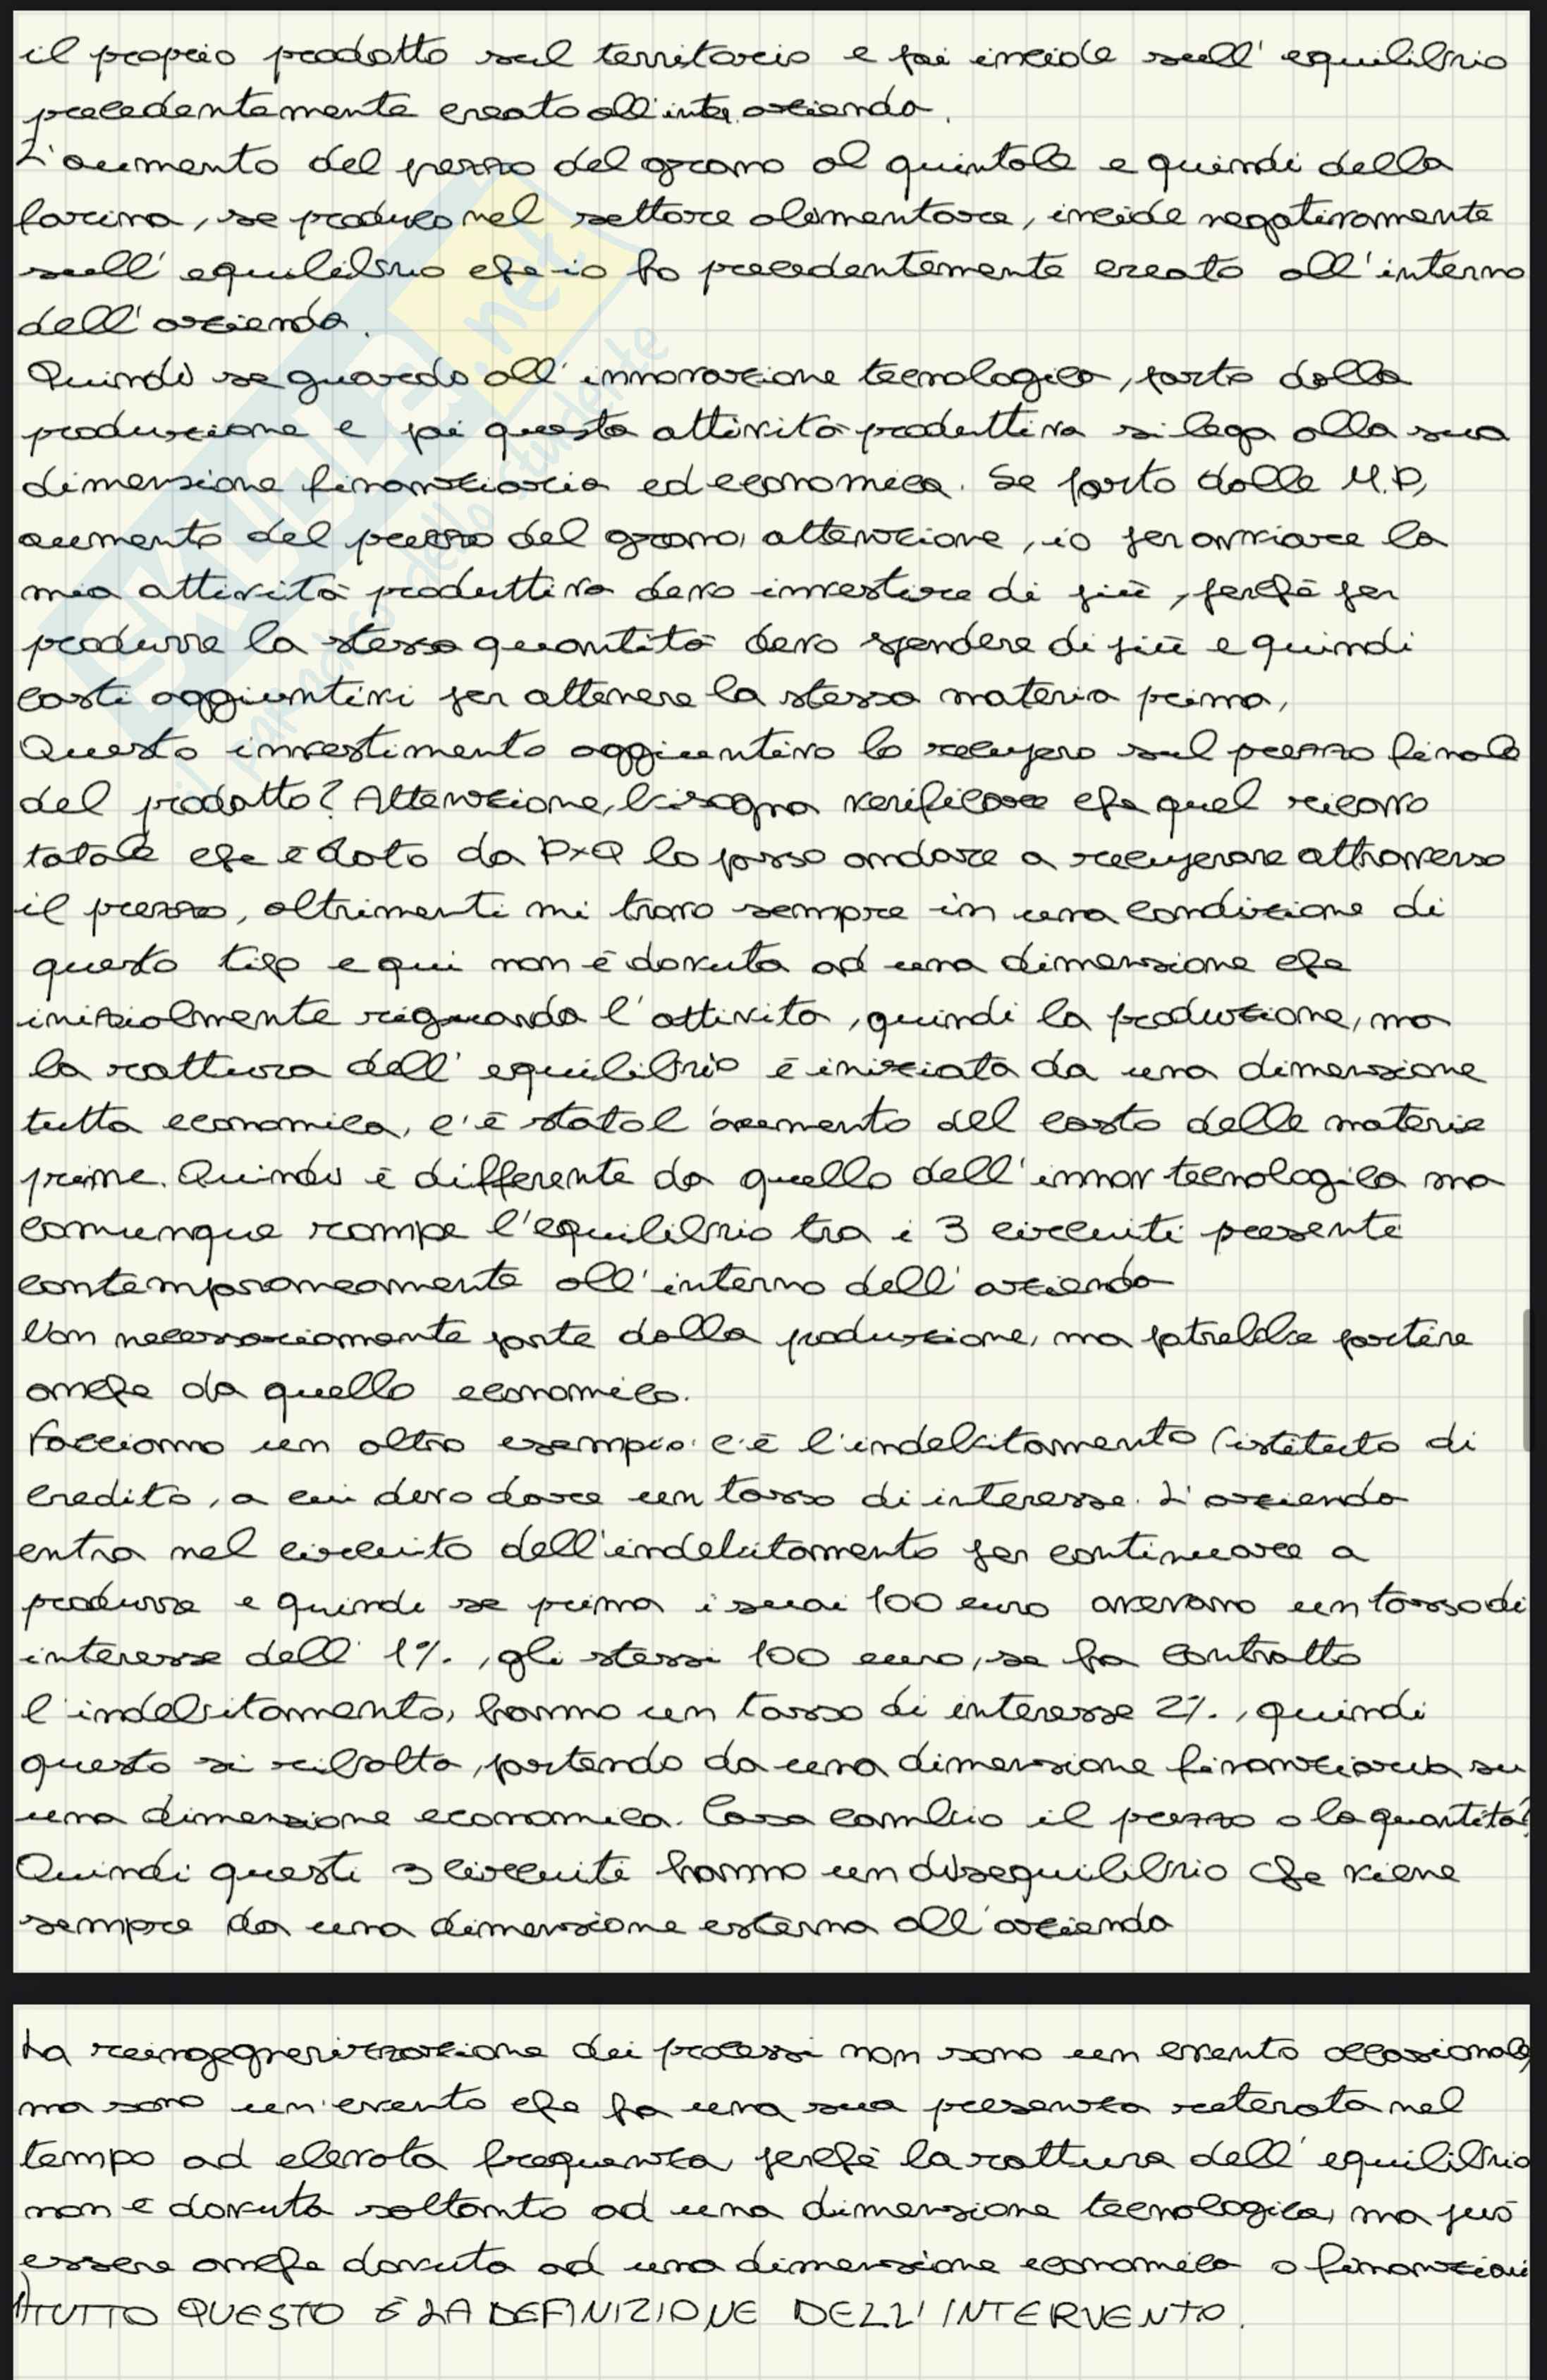 il proprio prodotto sul territorio e poi incide sull' equilibrio
precedentemente creato all'inter. azienda.
L'aumento del prezzo del grano al quintale e quindi della
farina, se produco nel settore alimentare, incide negativamente
sull' equilibrio che io ho precedentemente creato all'interno
dell'azienda.
Quindi se guardo all' innovazione tecnologica, parto dalla
produzione e poi questa attività produttiva si lega alla sua
dimensione finanziaria ed economica. Se parto dalle M.P,
aumento del prezzo del grano, attenzione, io per avviare la
mia attività produttiva devo investire di più, perché per
produrre la stessa quantità devo spendere di più e quindi
costi aggiuntivi per ottenere la stessa materia prima,
Questo investimento aggiuntivo lo recupero sul prezzo finale
del prodotto? Attenzione, bisogna verificare che quel ricavo
totale che è dato da P×Q lo posso andare a recuperare attraverso
il prezzo, altrimenti mi trovo sempre in una condizione di
questo tipo e qui non è dovuta ad una dimensione che
inizialmente riguarda l'attività, quindi la produzione, ma
la rottura dell' equilibrio è iniziata da una dimensione
tutta economica, c'è stato l'aumento del costo delle materie
prime. Quindi è differente da quello dell'innov tecnologica ma
comunque rompe l'equilibrio tra i 3 circuiti presente
contemporaneamente all'interno dell'azienda
Non necessariamente parte dalla produzione, ma potrebbe partire
anche da quello economico.
Facciamo un altro esempio: c'è l'indebitamento (istituto di
credito, a cui devo dare un tasso di interesse. L'azienda
entra nel circuito dell'indebitamento per continuare a
produrre e quindi se prima i suoi 100 euro avevano un tasso di
interesse dell' 1%, gli stessi 100 euro, se ha contratto
l'indebitamento, hanno un tasso di interesse 2%, quindi
questo si ribalta, partendo da una dimensione finanziaria su
una dimensione economica. Cosa cambio il prezzo o la quantità?
Quindi questi 3 circuiti hanno un disequilibrio che viene
sempre da una dimensione esterna all'azienda
La reingegnerizzazione dei processi non sono un evento occasionale,
ma sono un'evento che ha una sua presenza reiterata nel
tempo ad elevata frequenza, perché la rottura dell' equilibrio
non è dovuta soltanto ad una dimensione tecnologica, ma può
essere anche dovuta ad una dimensione economica o finanziari
TUTTO QUESTO È LA DEFINIZIONE DELL'INTERVENTO.